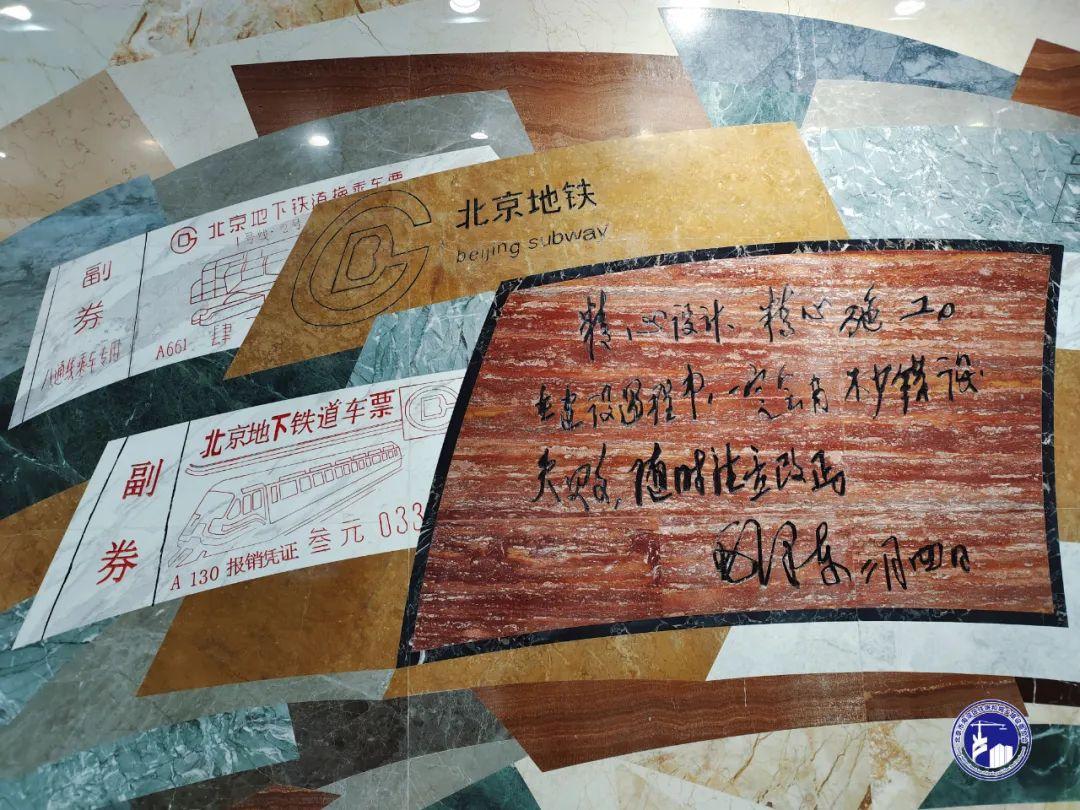 北京地下铁道换乘车票
1号线·2号
副
券
八通线乘车专用
A661 肆
北京地铁
beijing subway
北京地下铁道车票
副
券
A 130 报销凭证 叁元 033
精心设计、精心施工。
在建设过程中,一定会有不少错误
失败,随时注意改正
毛泽东 二月四日